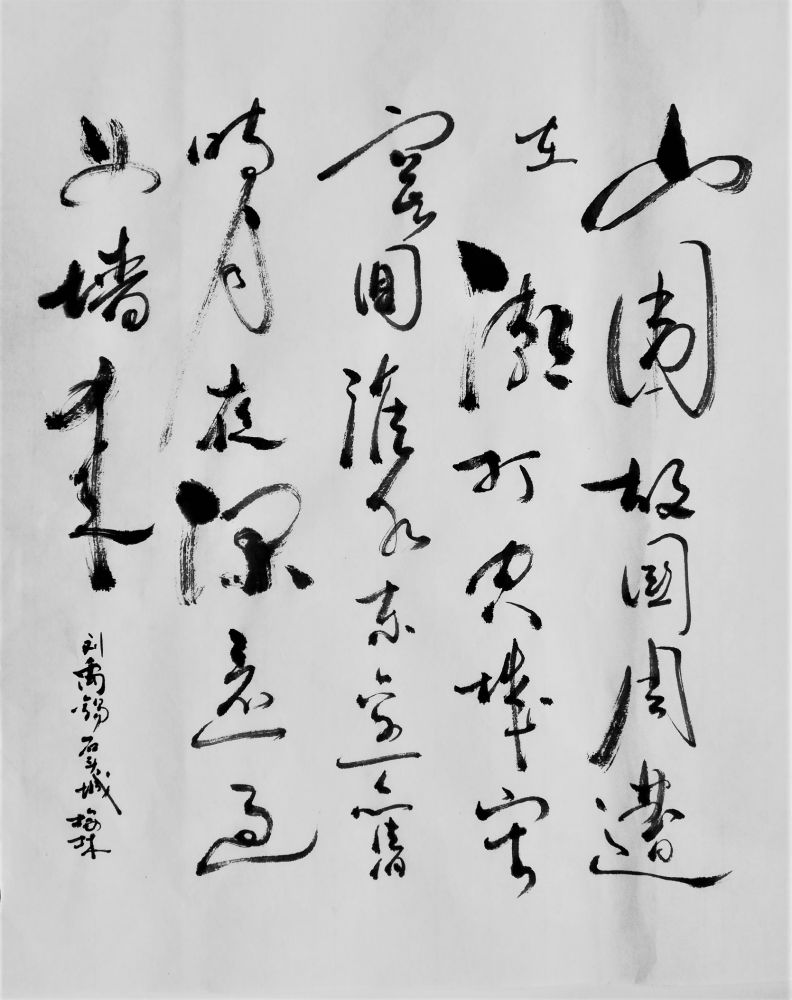 山围故国周遭
在潮打空城寂
寞回淮水东邊舊
時月夜深還過
女墙来
刘禹锡石头城